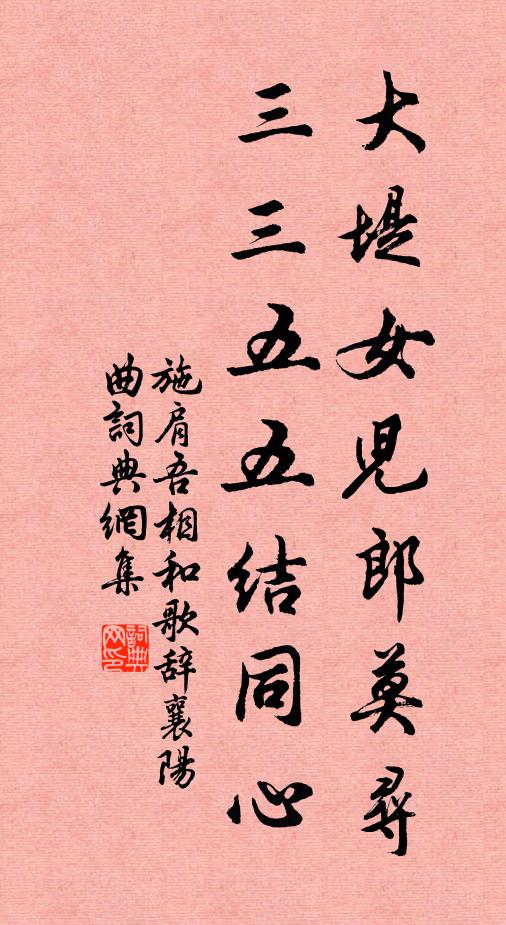 大堤女児郎莫尋
三三五五結同心
施肩吾相和歌辞襄陽
曲詞典網集
詞典
网印